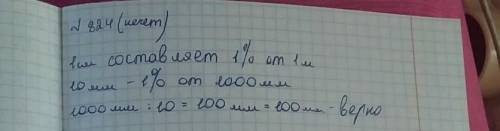 N 824 (нечет)
1см составляет 1% от 1м
10мм - 1% от 1000мм
1000мм : 10 = 100мм = 100мм - верно